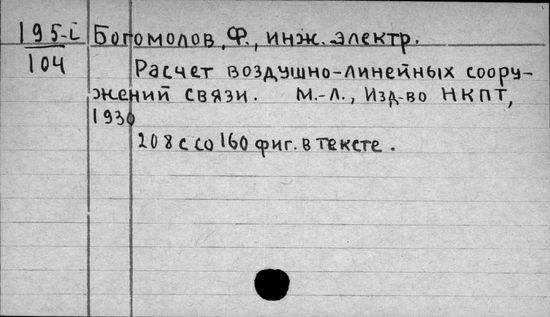 195-i Богомолов, Ф., инж. электр.
104
Расчет воздушно-линейных соору-
жений связи. М.-Л., Изд-во НКПТ,
1930
208 с со 160 фиг. в тексте.